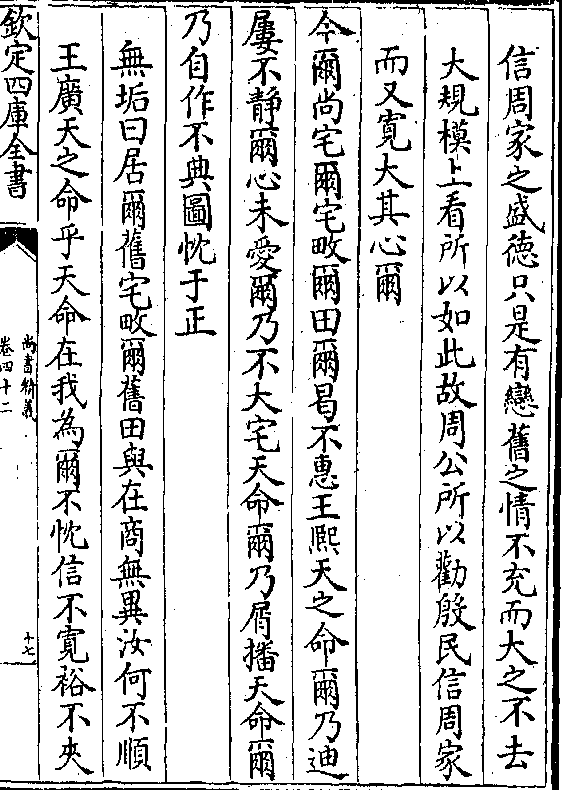 信周家之盛德只是有戀舊之情不充而大之不去
大規模上看所以如此故周公所以勸殷民信周家
而又寛大其心爾
今爾尚宅爾宅畋爾田爾曷不惠王熈天之命爾乃迪
屢不靜爾心未愛爾乃不大宅天命爾乃屑播天命爾
乃自作不典圖忱于正
無垢曰居爾舊宅畋爾舊田與在商無異汝何不順
王廣天之命乎天命在我為爾不忱信不寛裕不夾
欽定四庫全書
尚書精義
卷四十二
十七